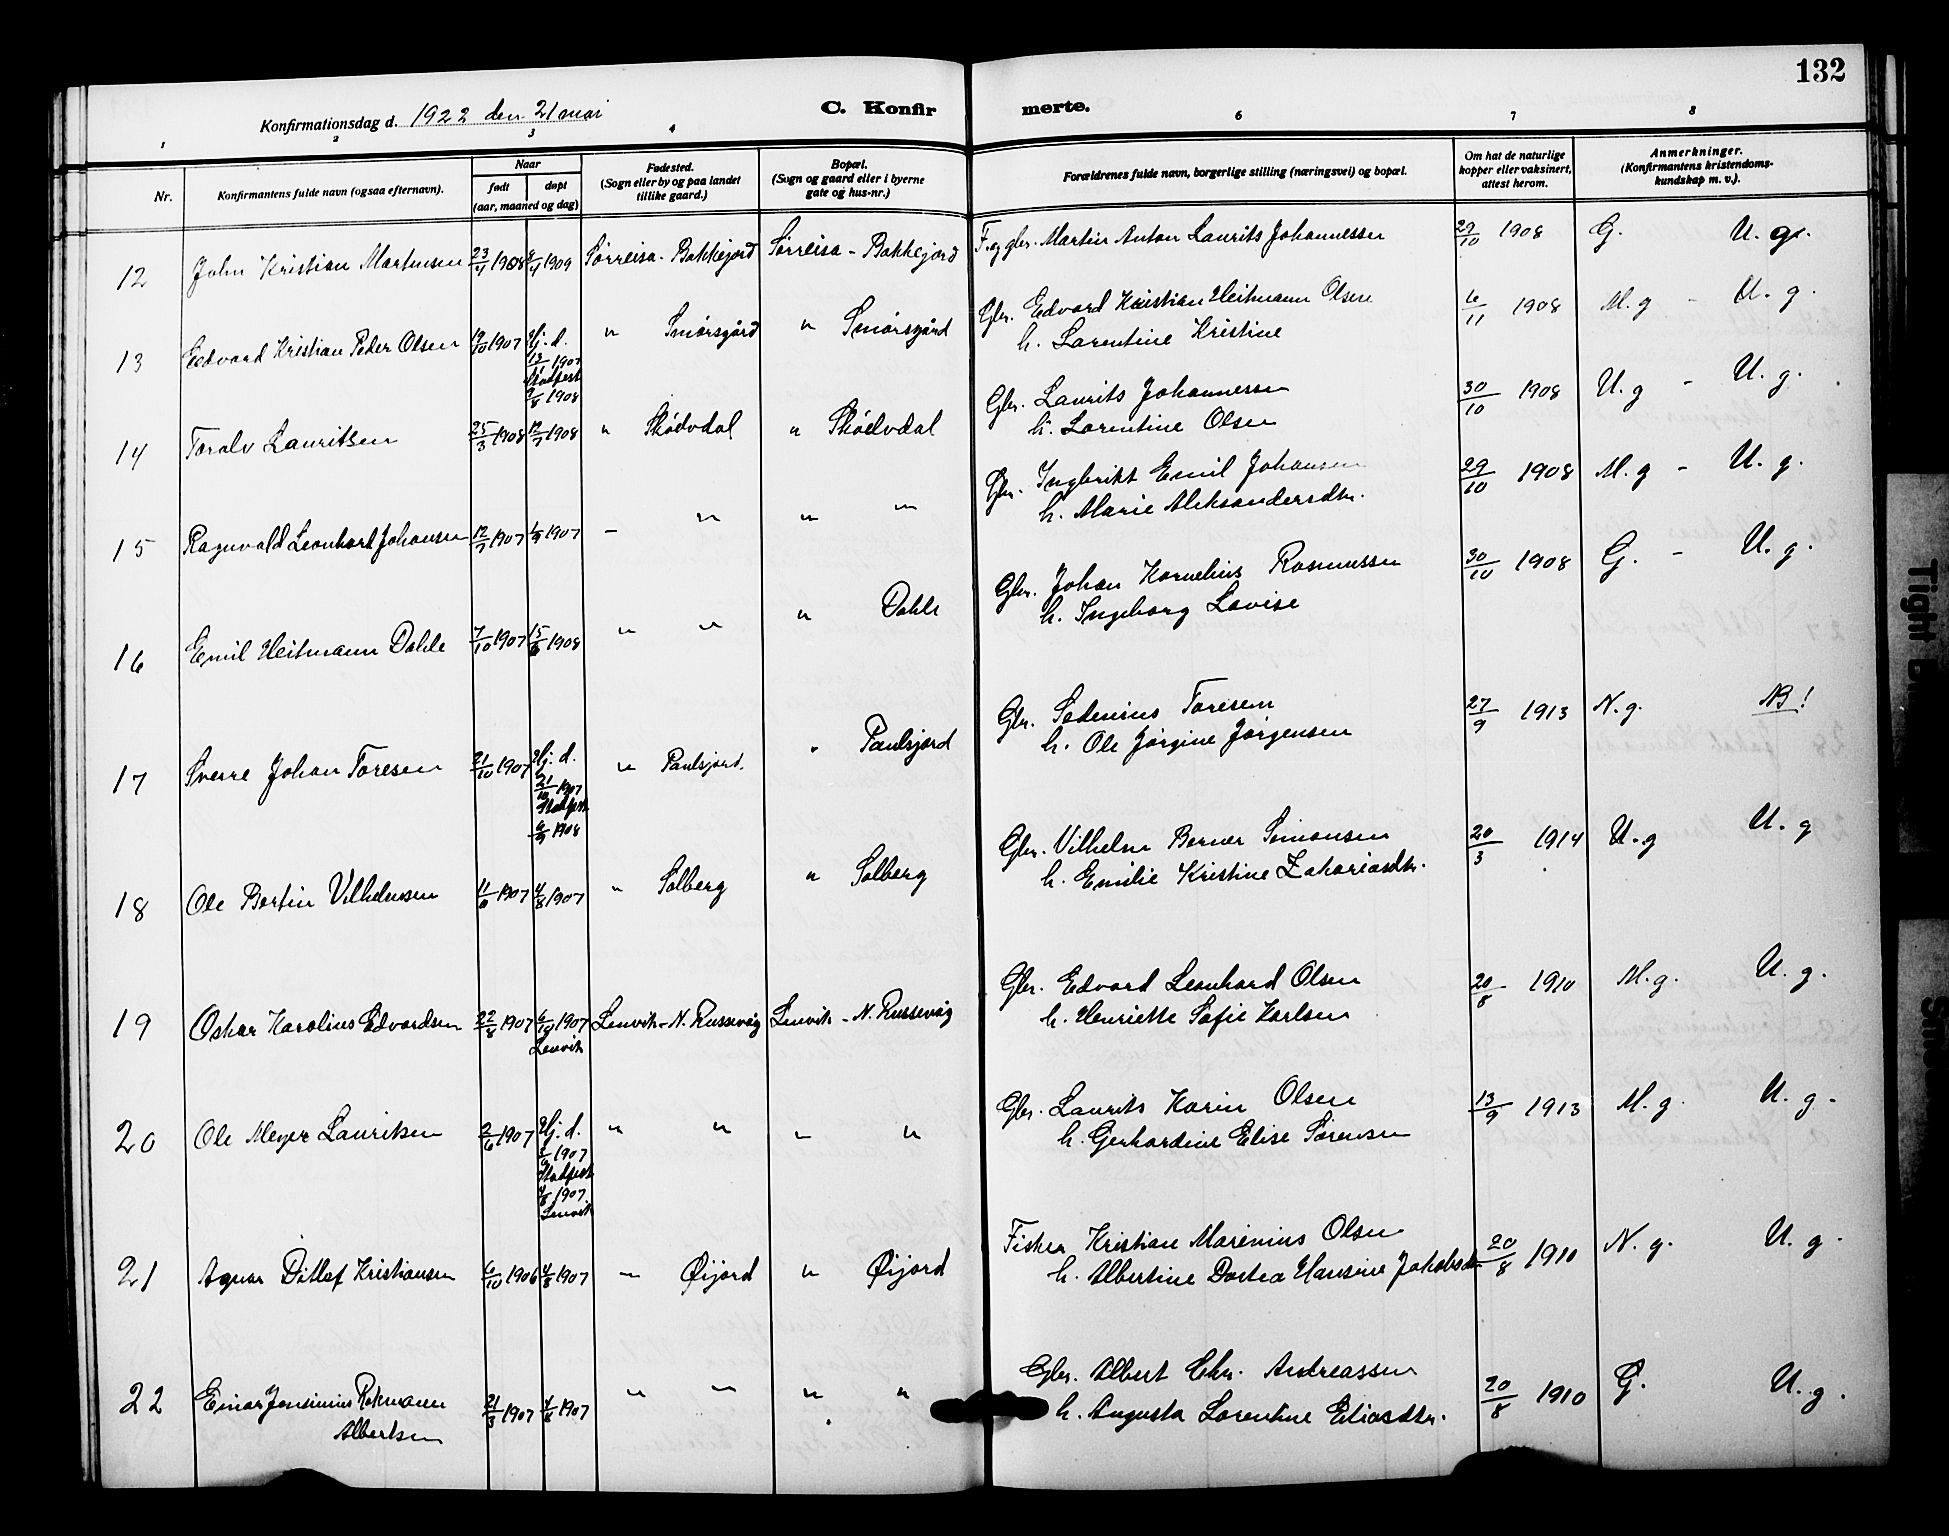 132
Konfirmationsdag d. 1922 den 21 mai
C. Konfirmerte.
1 2 3 4 6 7 8
Nr.
Konfirmantens fulde navn (ogsaa efternavn).
Naar
født
døpt
(aar, maaned og dag)
Fødested.
(Sogn eller by og paa landet
tillike gaard.)
Bopæl.
(Sogn og gaard eller i byerne
gate og hus-nr.)
Forældrenes fulde navn, borgerlige stilling (næringsvei) og bopæl.
Om hat de naturlige
kopper eller vaksinert,
attest herom.
Anmerkninger.
(Konfirmantens kristendoms-
kundskap m. v.).
12 John Kristian Martinsen 23/4 1908 /4 1909 Sørreisa - Bakkejord Sørreisa - Bakkejord F. og gbr. Martin Anton Laurits Johannessen 29/10 1908 G. U. g.
13 Edvard Kristian Peder Olsen 19/10 1907 Hj. d. " Smørsgård " Smørsgård Gbr. Edvard Kristian Heitmann Olsen 6/11 1908 M. g - U. g.
1907
Stadfest
9/8 1908
h. Larentine Kristine
14 Toralv Lauritsen 25/3 1908 12/7 1908 " Skødvdal " Skødvdal Gbr. Laurits Johannessen 30/10 1908 U. g - U. g.
h. Lorentine Olsen
15 Ragnvald Leonhart Johansen 12/7 1907 1/9 1907 - " " " Gbr. Ingbrikt Emil Johansen 29/10 1908 M. g - U. g.
h. Marie Aleksandersdtr.
16 Emil Heitmann Dahle 7/10 1907 15/6 1908 " " " Dahle Gbr. Johan Kornelius Rasmussen 30/10 1908 G. - U. g.
h. Ingeborg Lovise
17 Sverre Johan Toresen 21/10 1907 Hj. d. " Paulsjord. " Paulsjord Gbr. Sedenius Toresen 27/9 1913 N. g. NB!
21/10 1907
Stadfest
6/9 1908
h. Ole Jørgine Jørgensen
18 Ole Bertin Vilhelmsen 11/6 1907 4/8 1907 " Solberg " Solberg Gbr. Vilhelm Berner Simonsen 20/3 1914 U. g U. g
h. Emilie Kristine Zakariasdtr.
19 Oskar Karolius Edvardsen 22/8 1907 6/10 1907 Lenvik - N. Russevåg Lenvik - N. Russevåg Gbr. Edvard Leonhard Olsen 20/8 1910 M. g. U. g.
Lenvik
h. Henriette Sofie Karlsen
20 Ole Meyer Lauritsen 2/6 1907 Hj. d. " " " " Gbr. Laurits Karin Olsen 13/9 1913 M. g. U. g.
1907
Stadfest
4/8 1907.
Lenvik
h. Gerhardine Elise Sørensen
21 Agnar Ditlef Kristiansen 6/10 1906 4/8 1907 " Øijord " Øijord Fisker Kristian Marenius Olsen 20/8 1910 N. g. U. g.
h. Albertine Dortea Hansine Jakobsdtr.
22 Einar Jensinius Rekmann 21/3 1907 4/8 1907 " " " " Gbr. Albert Chr. Andreassen 20/8 1910 G. U. g.
Albertsen
h. Augusta Lorentine Eliasdtr.
Tight